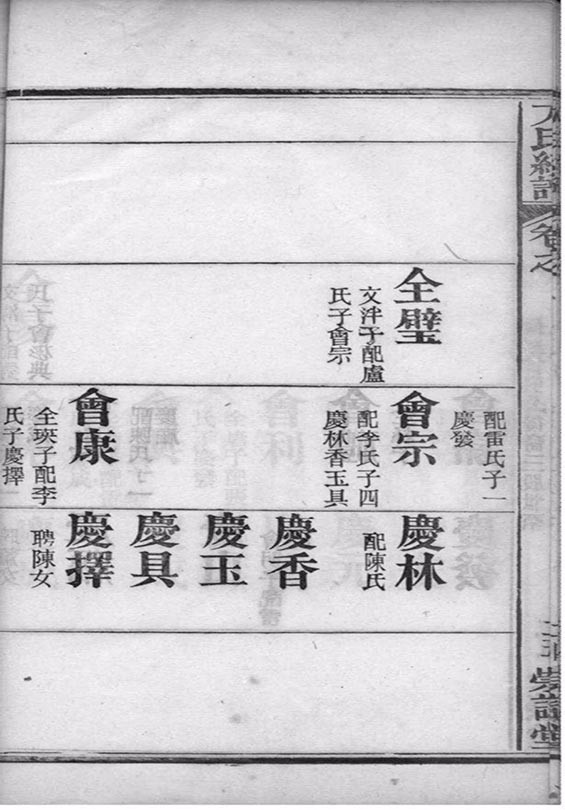 氏
譜
卷之
全璧
文泮子配盧
氏子會宗
配雷氏子一
慶發
會宗
配李氏子四
慶林香玉具
會康
全瑛子配李
氏子慶擇
慶林
配陳氏
慶香
慶玉
慶具
慶擇
聘陳女
崇誼堂